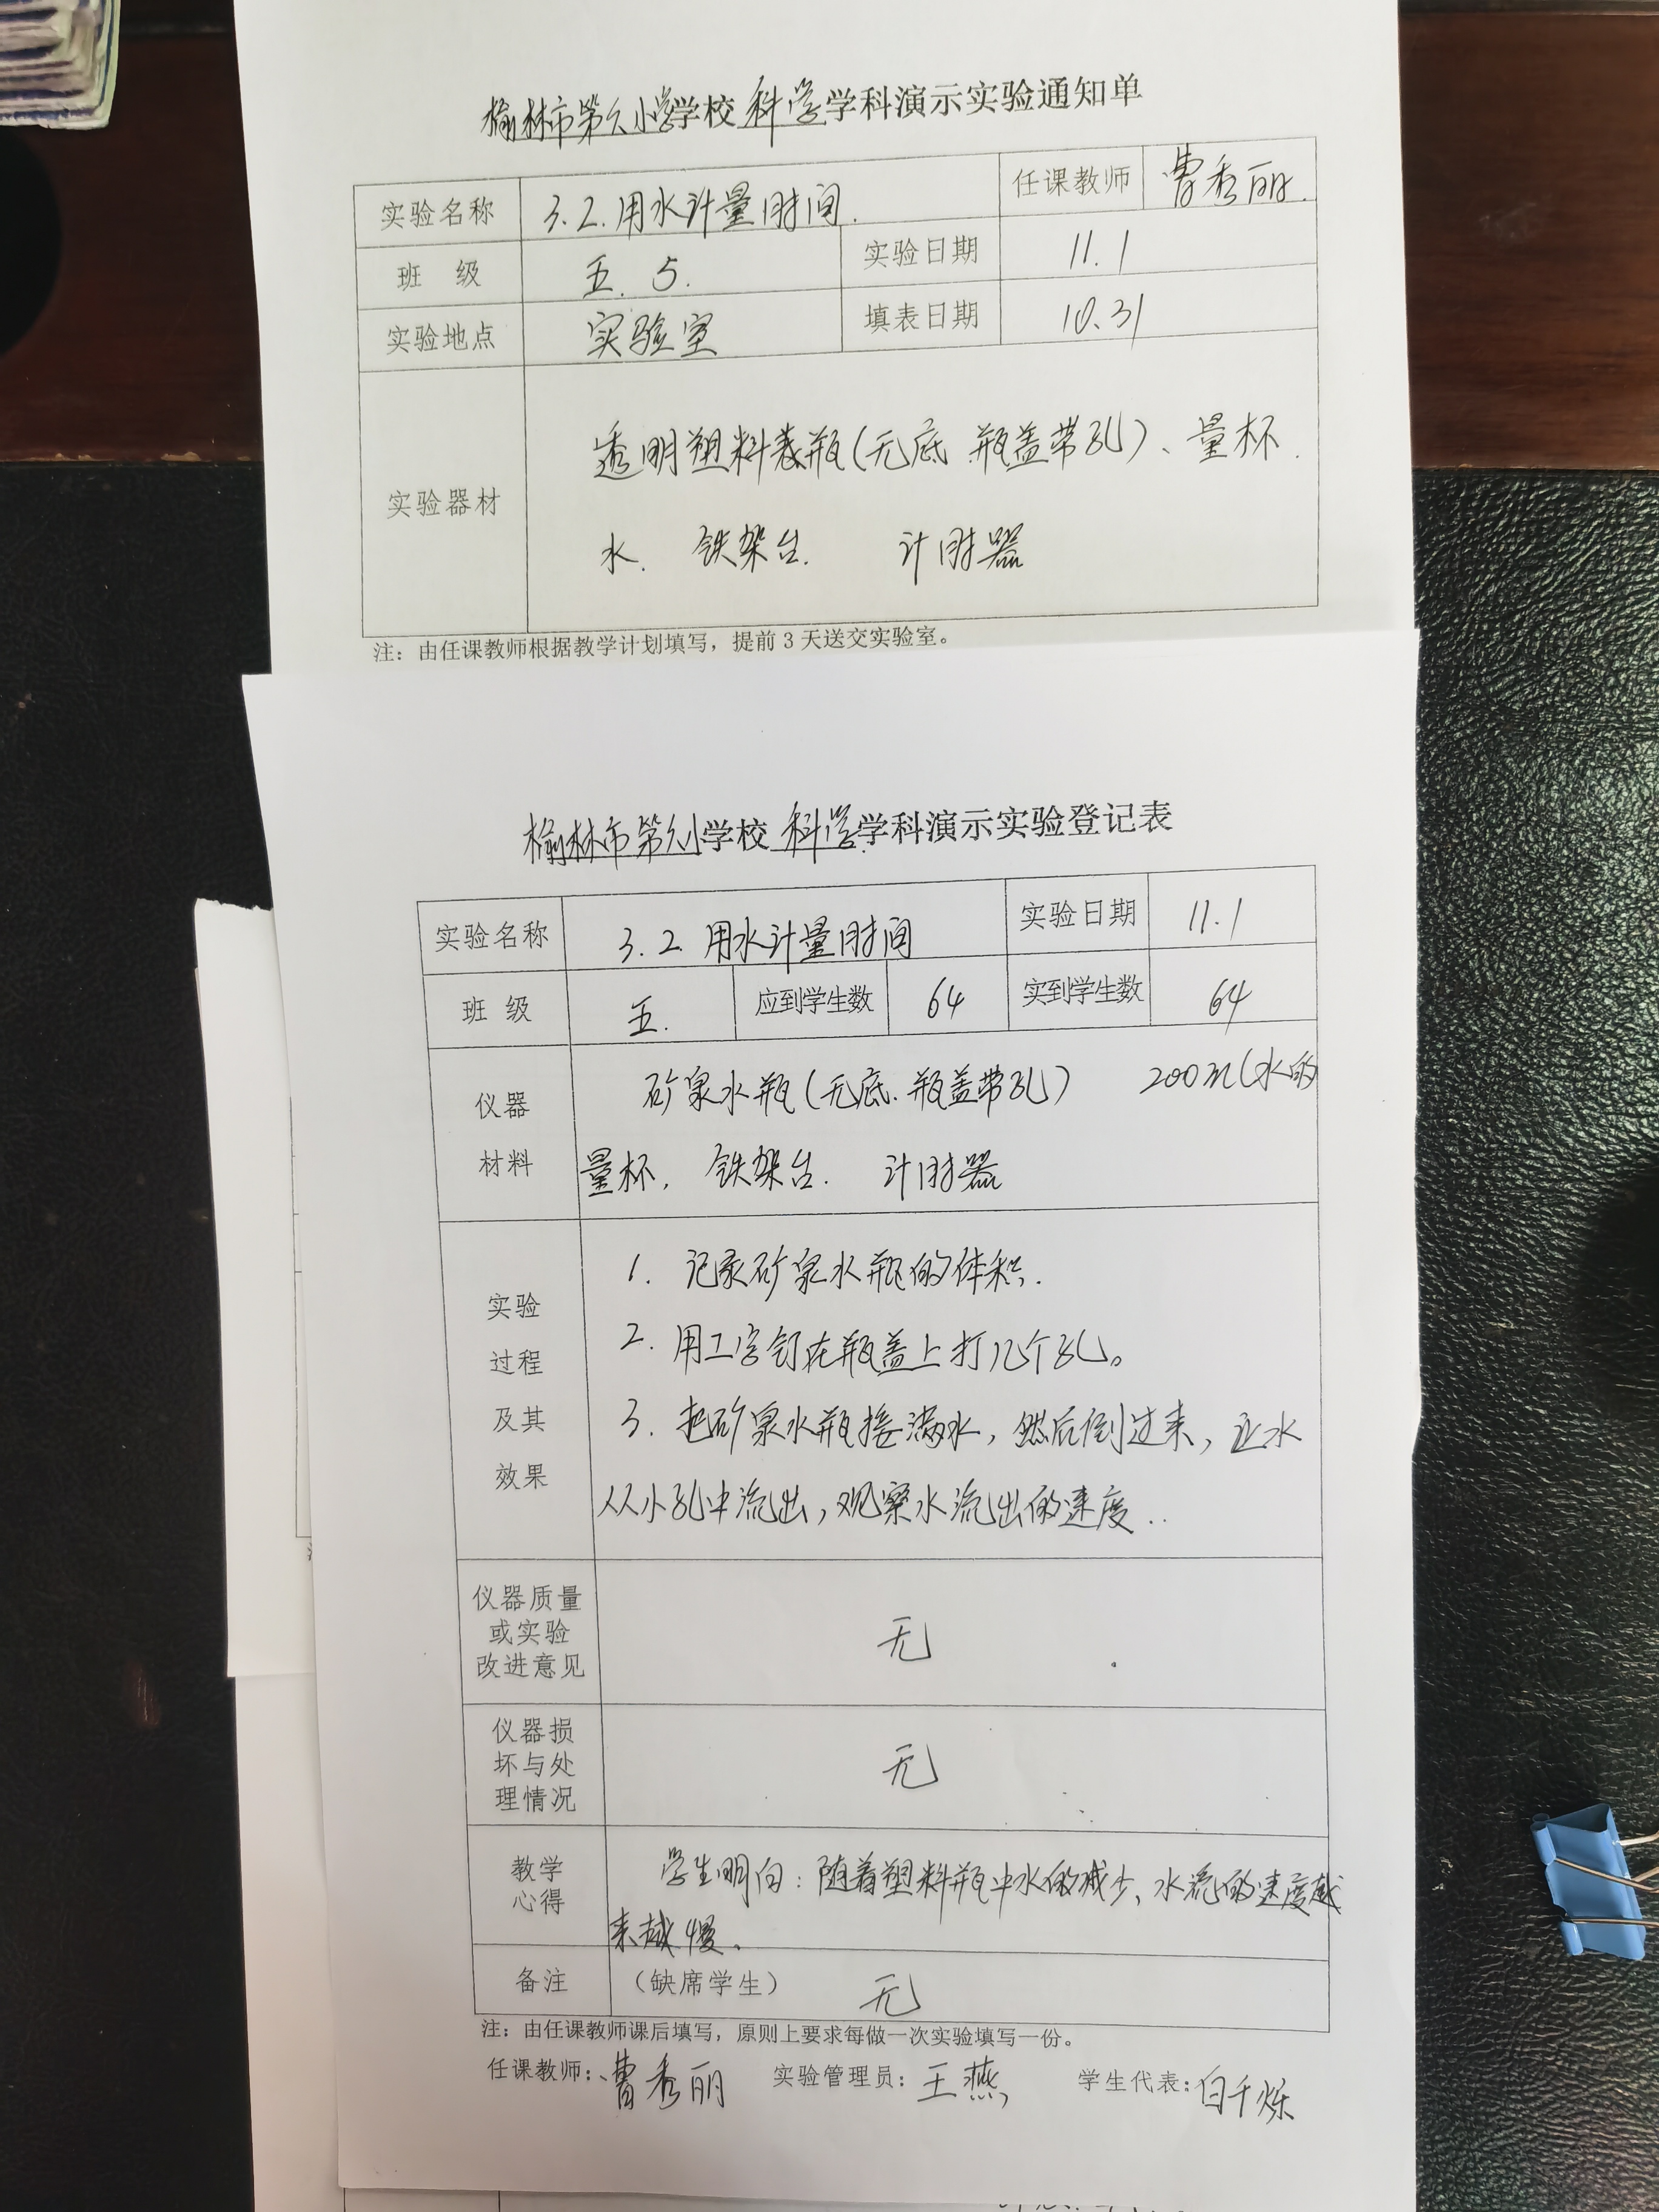 榆林市第九小学学校 科学 学科演示实验通知单
实验名称 3.2.用水计量时间. 任课教师 曹秀丽.
班 级 五.5. 实验日期 11.1
实验地点 实验室 填表日期 10.31
实验器材
透明塑料瓶(无底 瓶盖带孔)、量杯.
水. 铁架台. 计时器
注：由任课教师根据教学计划填写，提前3天送交实验室。
榆林市第九小学校 科学 学科演示实验登记表
实验名称 3.2 用水计量时间 实验日期 11.1
班 级 五. 应到学生数 64 实到学生数 64
仪器
材料
矿泉水瓶(无底.瓶盖带孔) 200ml水的
量杯, 铁架台. 计时器
实验
过程
及其
效果
1. 记录矿泉水瓶的体积.
2. 用工字钉在瓶盖上打几个孔。
3. 把矿泉水瓶接满水，然后倒过来，让水
从小孔中流出，观察水流出的速度..
仪器质量
或实验
改进意见
无
仪器损
坏与处
理情况
无
教学
心得
学生明白：随着塑料瓶中水的减少、水流的速度越
来越慢。
备注 （缺席学生） 无
注：由任课教师课后填写，原则上要求每做一次实验填写一份。
任课教师：曹秀丽 实验管理员：王燕 学生代表：白千烁